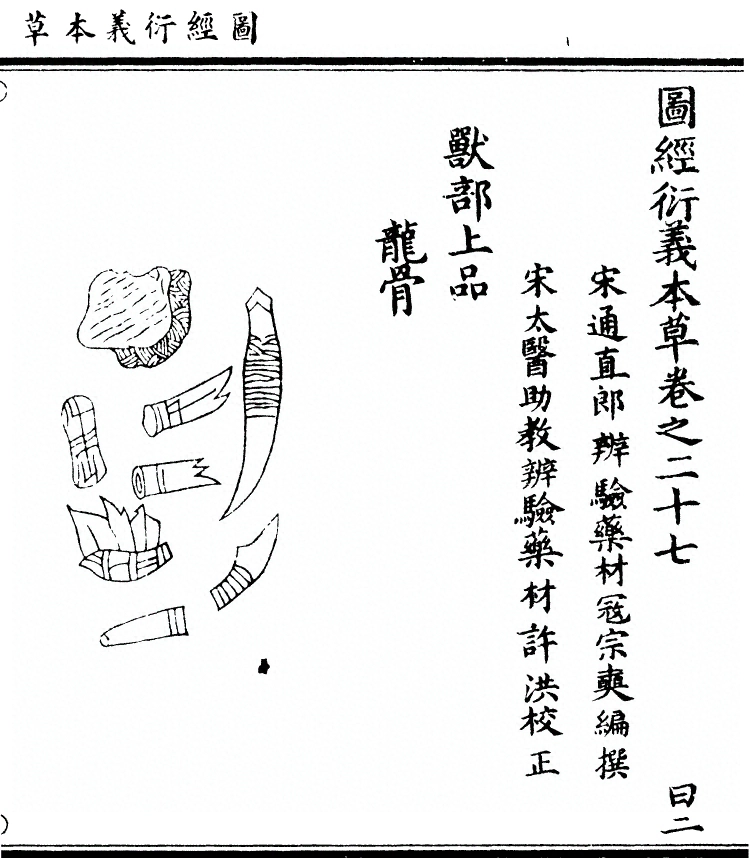 圖經衍義本草
圖經衍義本草卷之二十七
曰二
宋通直郎辨驗藥材寇宗奭編撰
宋太醫助教辨驗藥材許洪校正
獸部上品
龍骨